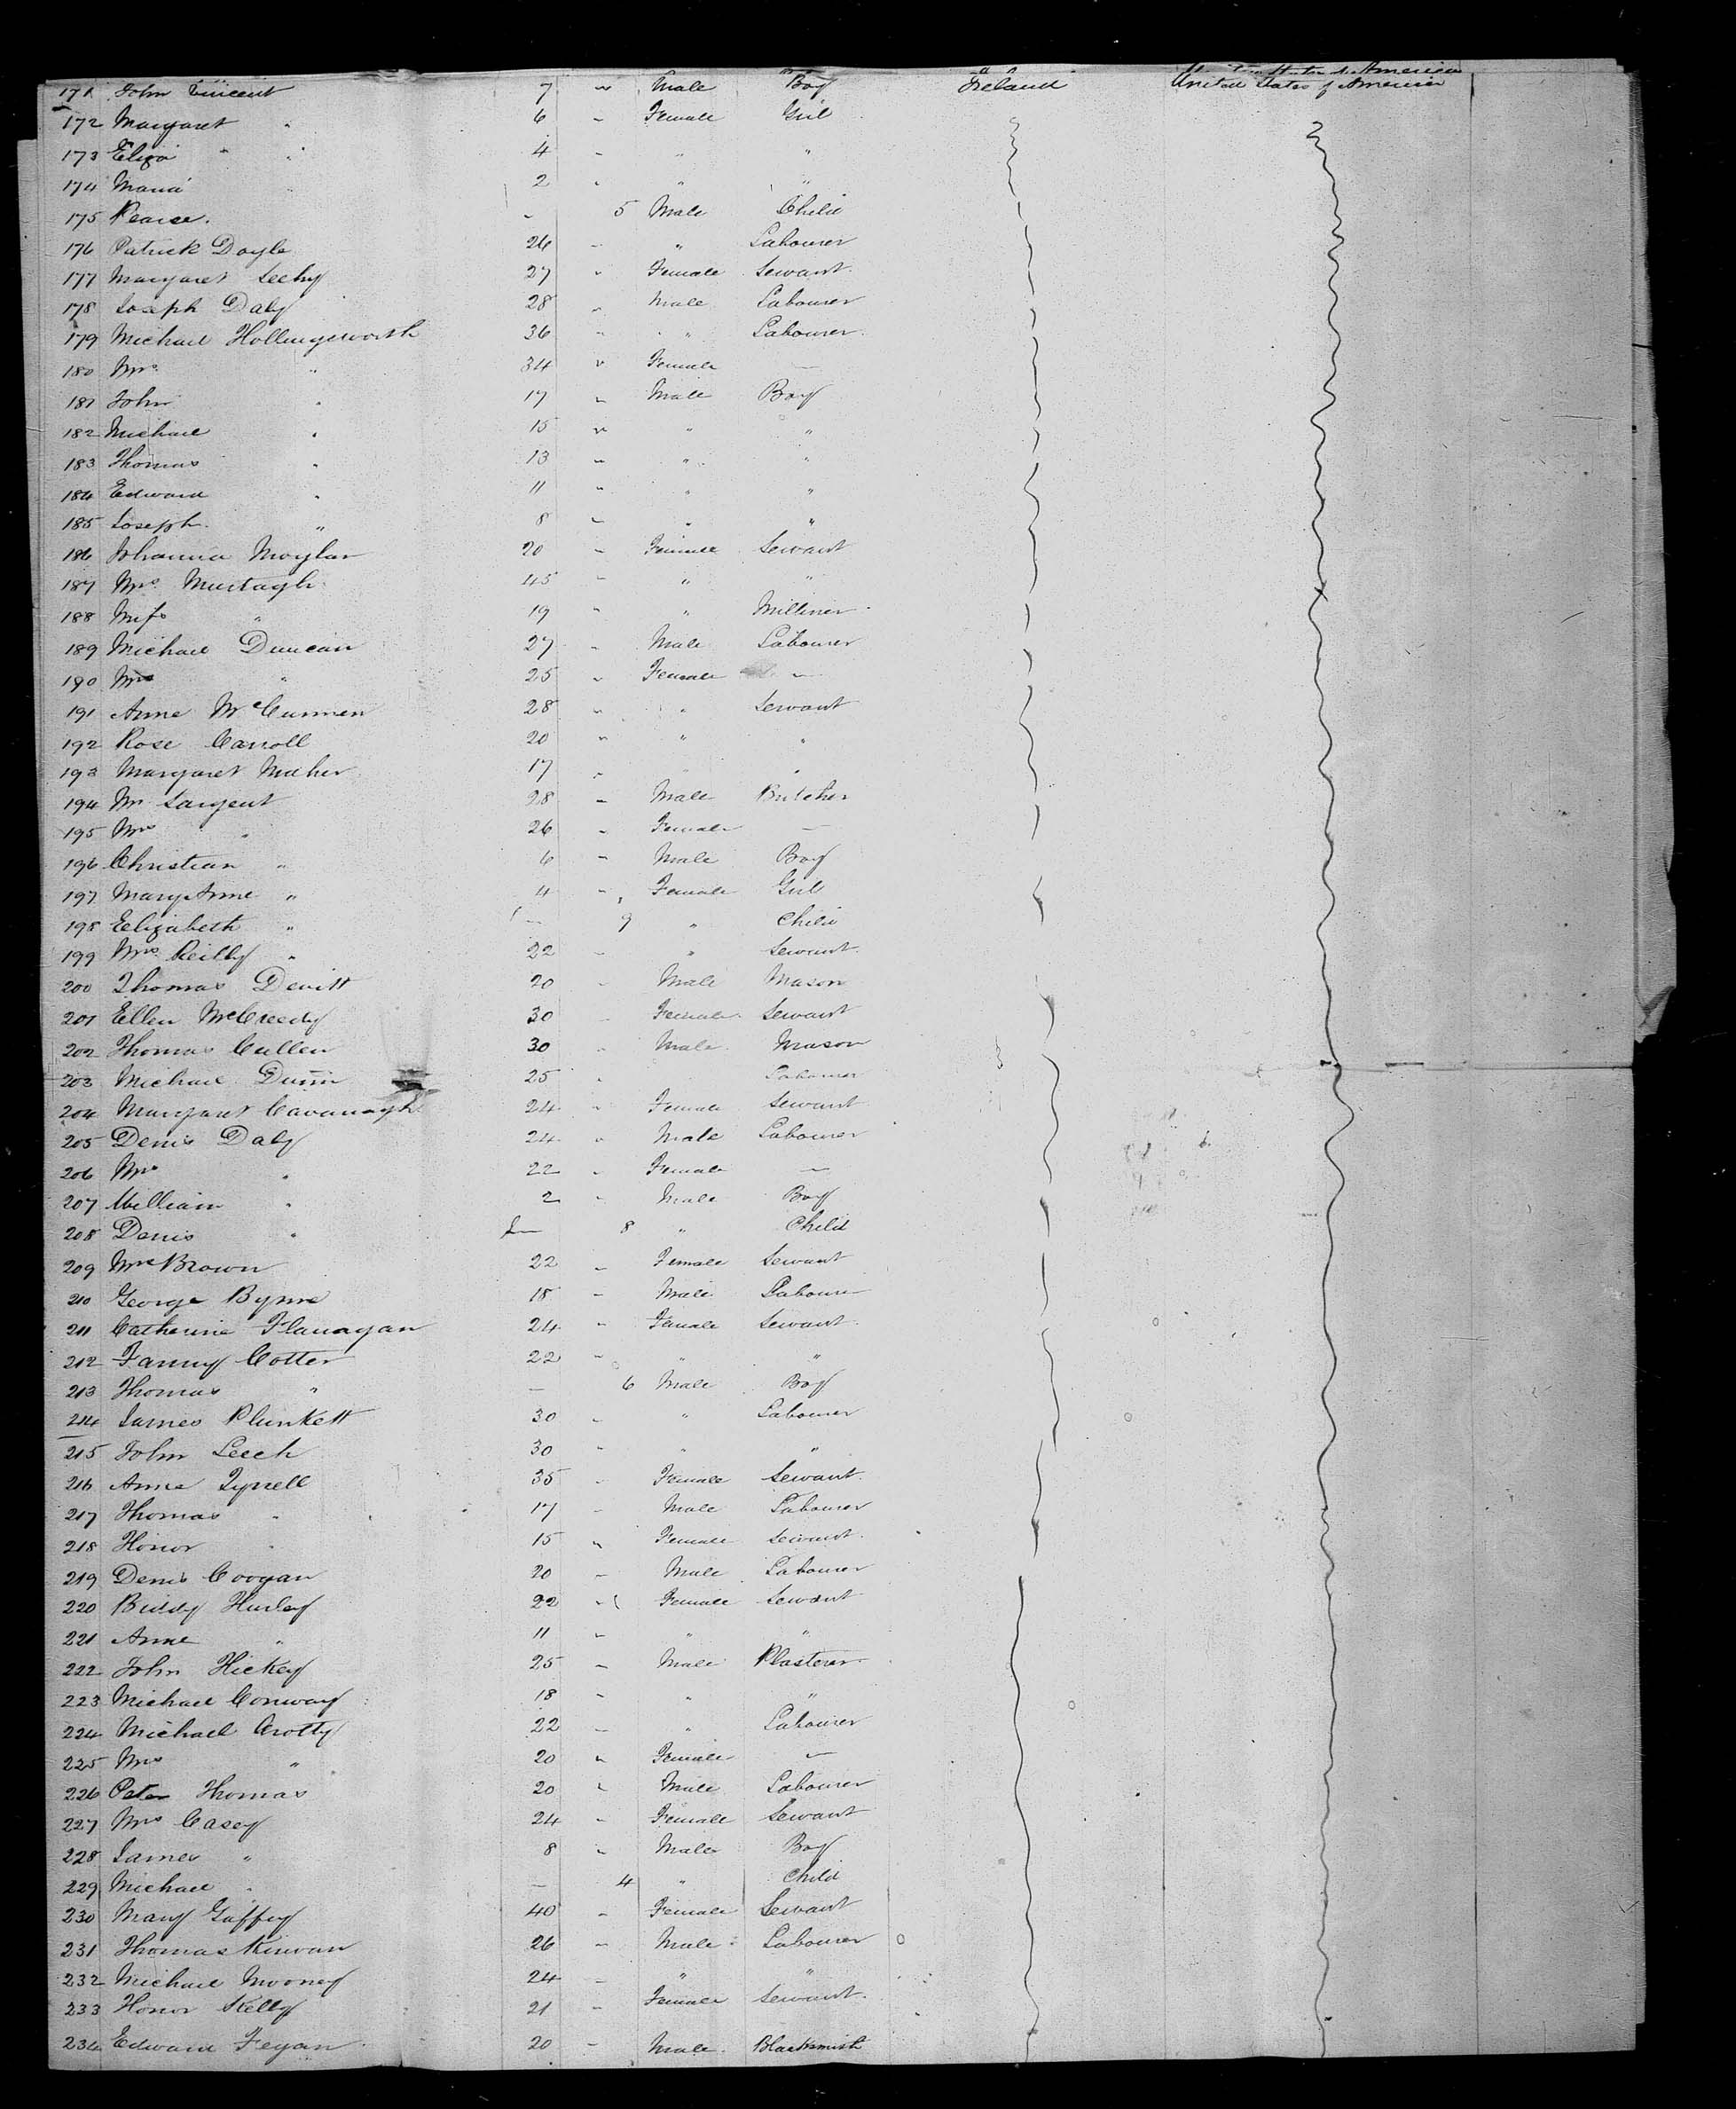 171 John Vincent 7 " Male Boy Ireland United States of America
172 Margaret " 6 " Female Girl
173 Eliza " " 4 " " "
174 Maria " 2 " " "
175 Pearce. - 5 Male Child
176 Patrick Doyle 26 " " Labourer
177 Margaret Leehy 27 " Female Servant.
178 Joseph Daly 28 " Male Labourer
179 Michael Hollingsworth 36 " " Labourer.
180 Mrs. " 34 " Female —
181 John " 17 " Male Boy
182 Michael " 15 " " "
183 Thomas " 13 " " "
184 Edward " 11 " " "
185 Joseph. " 8 " " "
186 Johanna Moylan 20 " Female Servant
187 Mrs. Murtagh. 45 " " "
188 Miss " 19 " " Milliner.
189 Michael Duncan 27 " Male Labourer
190 Mrs " 25 " Female —
191 Anne McCunnen 28 " " Servant
192 Rose Carroll 20 " " "
193 Margaret Maher 17 " " "
194 Mr Sargent 28 " Male Butcher
195 Mrs " 26 " Female —
196 Christian " 6 " Male Boy
197 Mary Anne " 4 " Female Girl
198 Elizabeth " — 9 " Child
199 Mrs. Reilly " 22 " " Servant.
200 Thomas Devitt 20 " Male Mason
201 Ellen McCreedy 30 " Female Servant
202 Thomas Cullen 30 " Male Mason
203 Michael Dunn 25 " Labourer
204 Margaret Cavanagh 24 " Female Servant
205 Denis Daly 24 " Male Labourer
206 Mrs " 22 " Female —
207 William " 2 " Male Boy
208 Denis " — 8 " Child
209 Mrs Brown 22 " Female Servant
210 George Byrne 18 " Male Labourer
211 Catherine Flanagan 24 " Female Servant.
212 Fanny Cotter 22 " " "
213 Thomas " — 6 Male Boy
214 James Plunkett 30 " " Labourer
215 John Leech 30 " " "
216 Anne Tyrrell 35 " Female Servant.
217 Thomas " 17 " Male Labourer
218 Honor " 15 " Female Servant.
219 Denis Coogan 20 " Male Labourer
220 Biddy Hurley 22 " Female Servant
221 Anne " 11 " " "
222 John Hickey 25 " Male Plasterer
223 Michael Conway 18 " " "
224 Michael Crotty 22 " " Labourer
225 Mrs " 20 " Female —
226 Peter Thomas 20 " Male Labourer
227 Mrs Casey 24 " Female Servant
228 James " 8 " Male Boy
229 Michael " — 4 " Child
230 Mary Gaffey 40 " Female Servant
231 Thomas Kirwan 26 " Male Labourer
232 Michael Mooney 24 " " "
233 Honor Kelly 21 " Female Servant.
234 Edward Fegan 20 " Male. Blacksmith